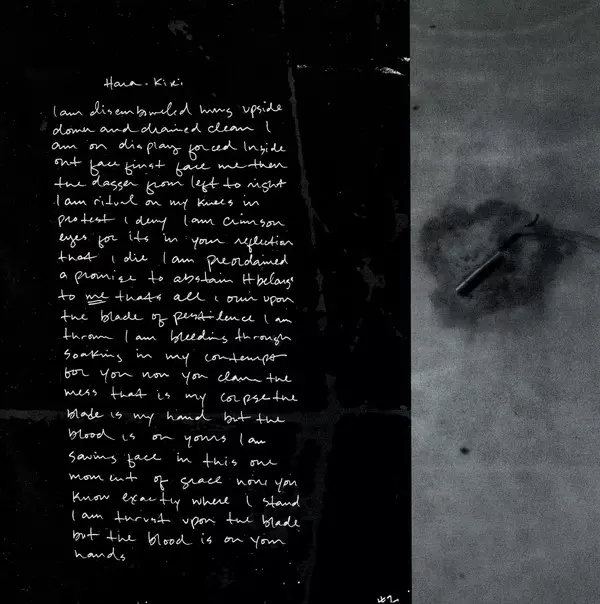 Hara. Kiri
I am disemboweled hung upside
down and drained clean I
am on display forced Inside
out face first face me then
the dagger from left to right
I am ritual on my knees in
protest I deny I am crimson
eyes for its in your reflection
that I die I am preordained
a promise to abstain It belongs
to me thats all I own upon
the blade of pestilence I am
thrown I am bleeding through
soaking in my contempt
for you now you claim the
mess that is my corpse the
blade is my hand but the
blood is on yours I am
saving face in this one
moment of grace now you
know exactly where I stand
I am thrust upon the blade
but the blood is on your
hands